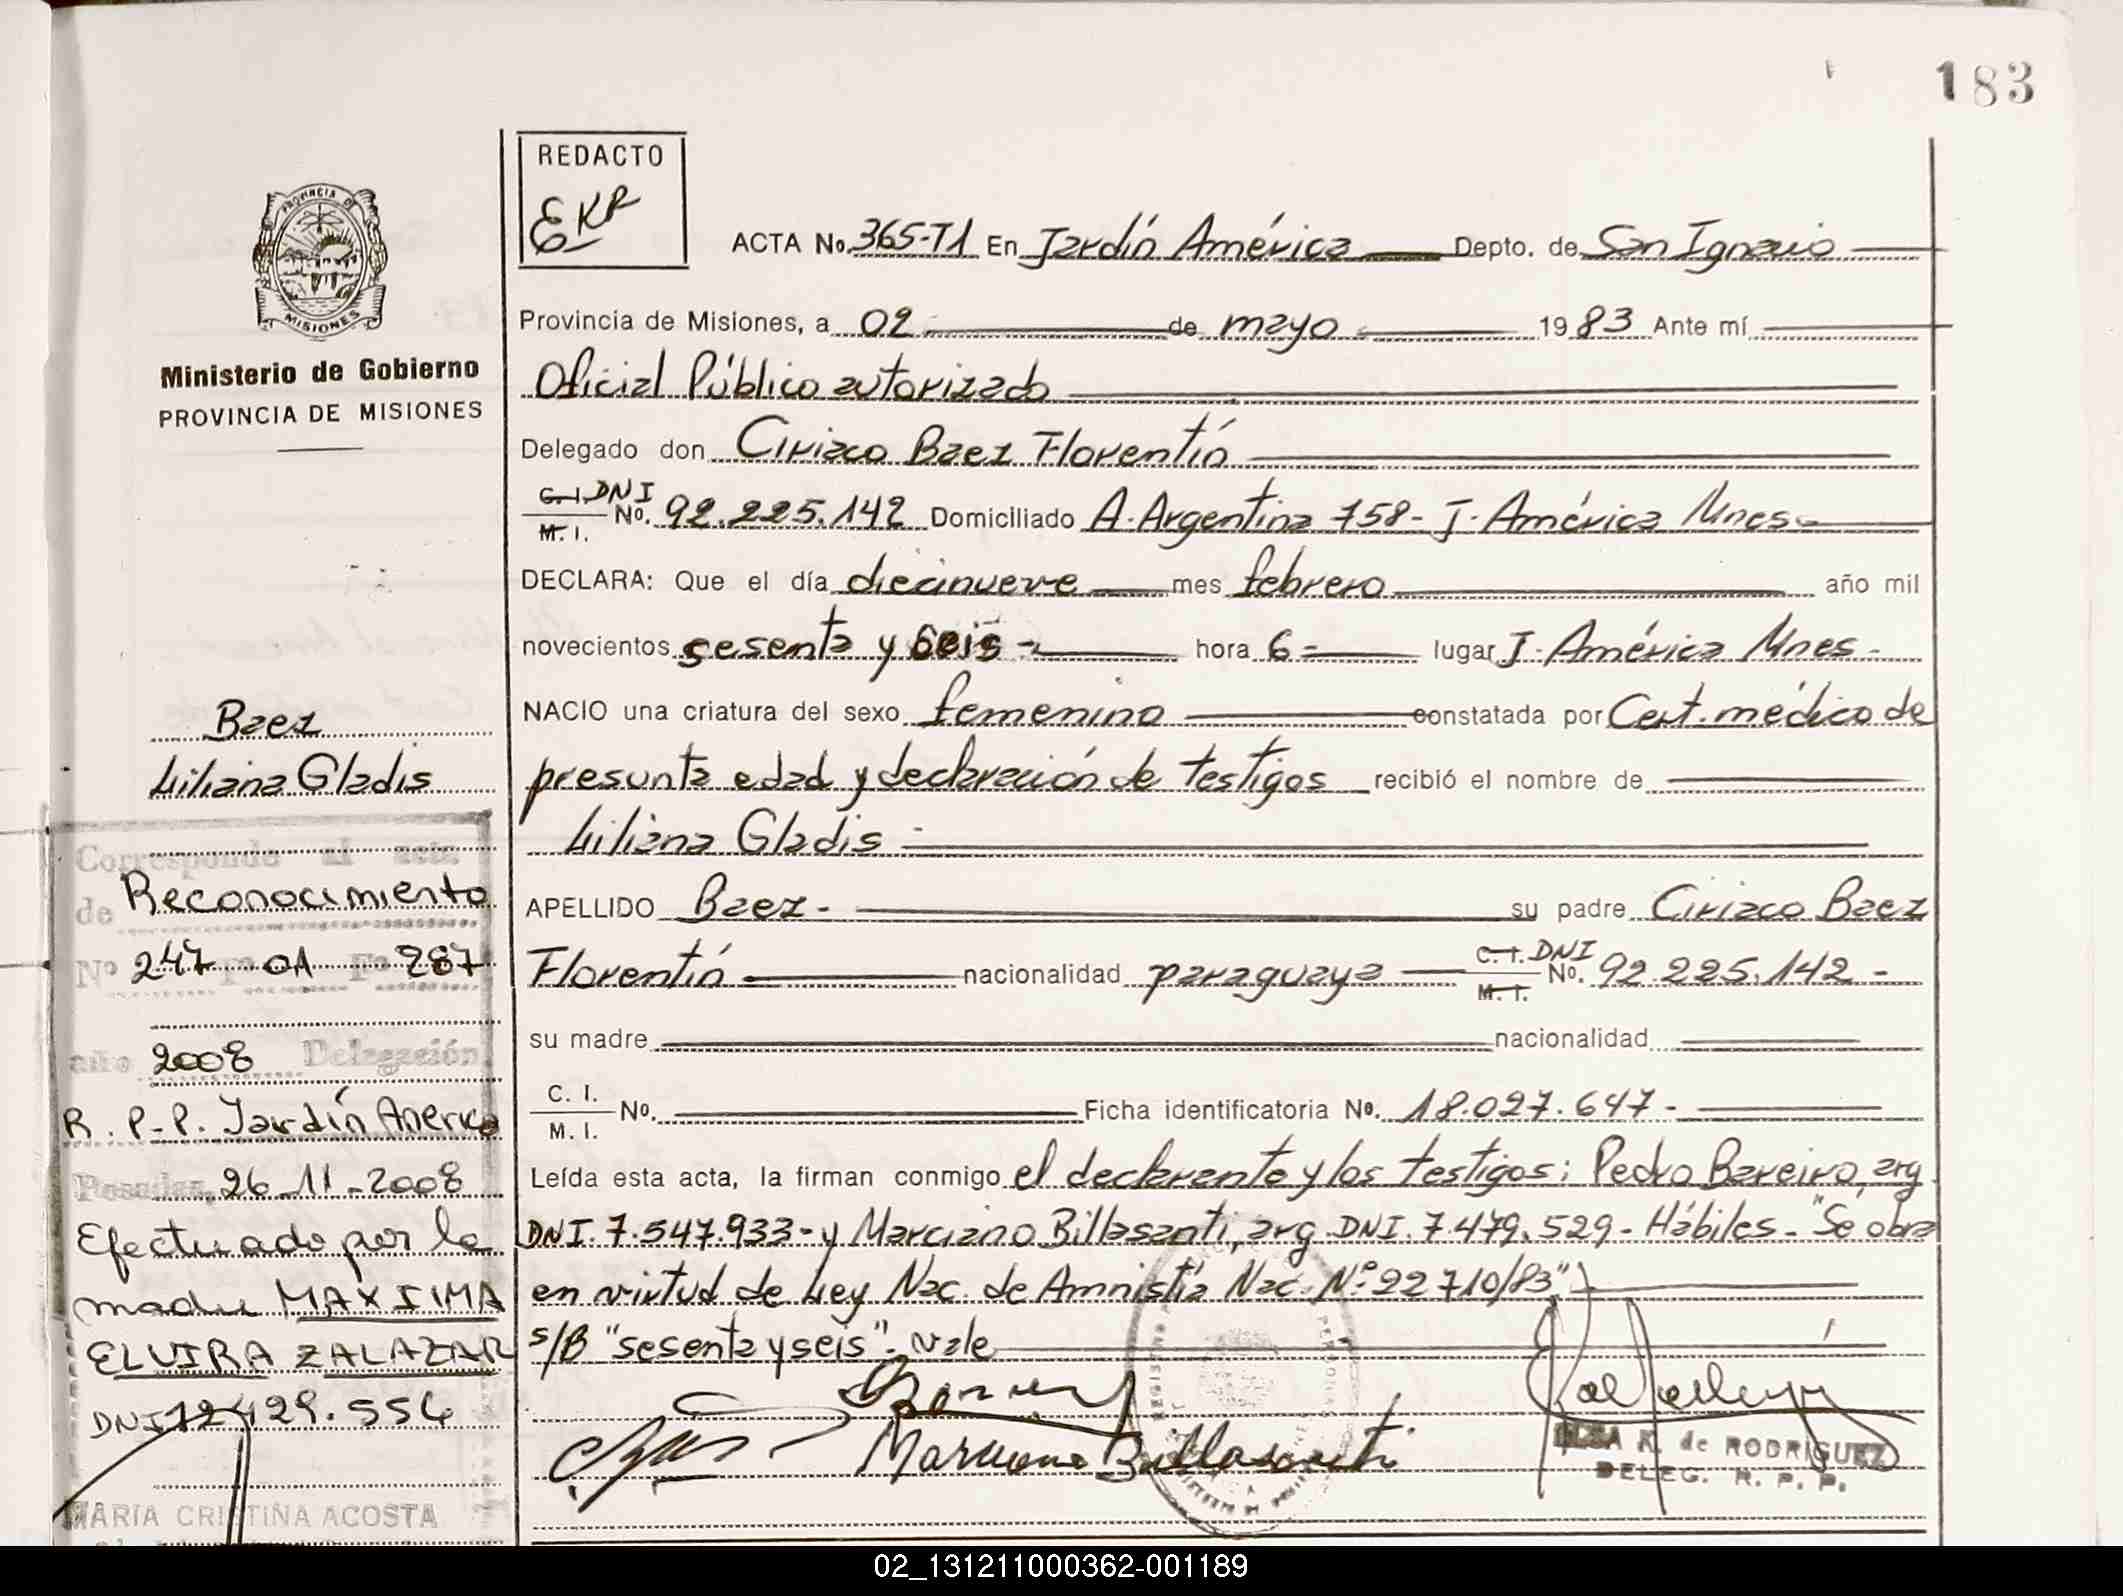 183
REDACTO
EKR
PROVINCIA DE
MISIONES
Ministerio de Gobierno
PROVINCIA DE MISIONES
ACTA No. 365-T1 En Jardín América Depto. de San Ignacio
Provincia de Misiones, a 02 de mayo 1983 Ante mí
Oficial Público autorizado
Delegado don Ciriaco Baez Florentín
C.I. DNI
M. I. No. 92.225.142 Domiciliado A. Argentina 758 - J. América Mnes.
DECLARA: Que el día diecinueve mes febrero año mil
novecientos sesenta y seis - hora 6 - lugar J. América Mnes -
NACIO una criatura del sexo femenino constatada por Cert. médico de
presunta edad y declaración de testigos recibió el nombre de
Liliana Gladis -
APELLIDO Baez - su padre Ciriaco Baez
Florentín nacionalidad paraguaya C.I. DNI M. I. No. 92.225.142 -
su madre nacionalidad
C. I.
M. I. No. Ficha identificatoria No. 18.027.647 -
Leída esta acta, la firman conmigo el declarante y los testigos: Pedro Bareiro, arg
DNI. 7.547.933 - y Marciano Billasanti, arg. DNI. 7.479.529 - Hábiles - "Se obra
en virtud de Ley Nac. de Amnistía Nac. Nº 22710/83")
s/B "sesenta y seis" - vale
Marciano Billasanti
ELSA K. de RODRIGUEZ
DELEG. R. P. P.
Baez
Liliana Gladis
Corresponde al acta
de Reconocimiento
Nº 247 Tº 01 Fº 287
año 2008 Delegación
R. P-P. Jardín America
Posadas, 26-11-2008
Efectuado por la
madre MAXIMA
ELVIRA ZALAZAR
DNI 12.429.554
MARIA CRISTINA ACOSTA
02_131211000362-001189